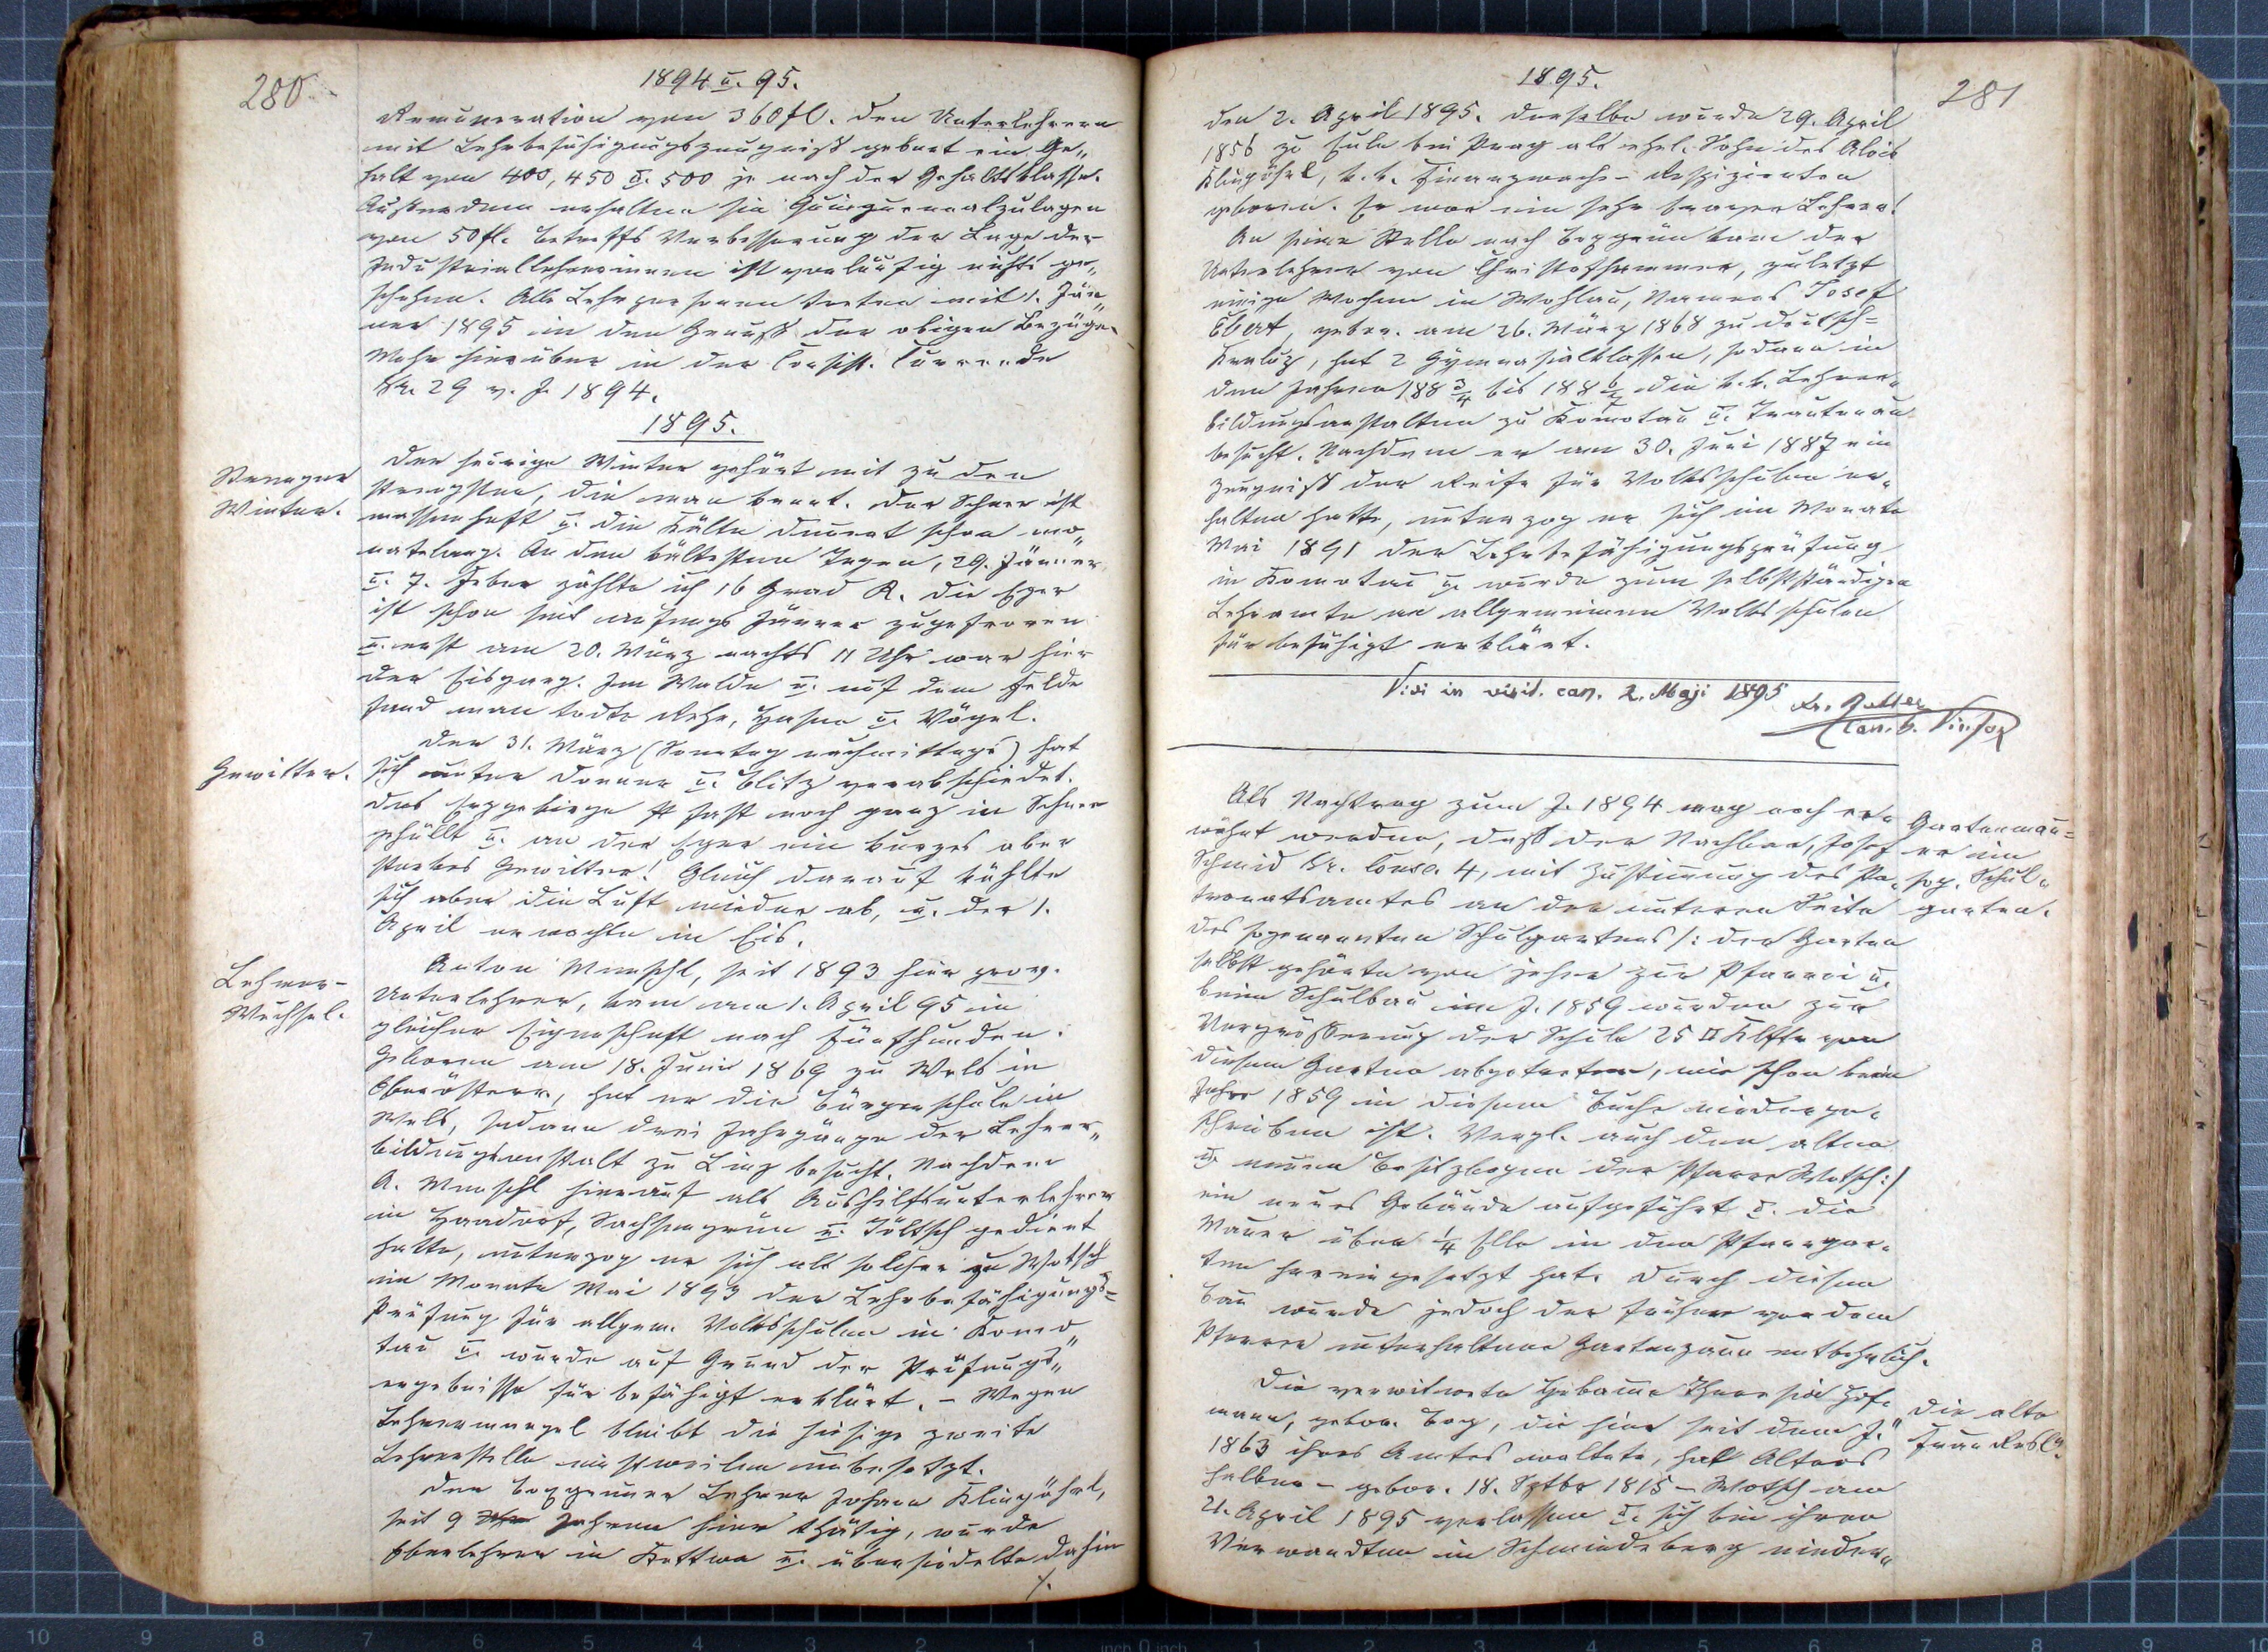 280
1894 u. 95.
Remuneration von 360 fl. Den Unterlehrern
mit Lehrbefähigungszeugniß gebürt ein Ge„
halt von 400, 450 u. 500 je nach der Gehaltsklasse.
Außerdem erhalten sie Quinquennalzulagen
von 50 fl. Betreffs Verbesserung der Lage der
Industriallehrerinnen ist vorläufig nichts ge„
schehen. Alle Lehrpersonen treten mit 1. Jän„
ner 1895 in den Genuß der obigen Bezüge.
Mehr hierüber in der Consist. Currende
Nr. 29 v. J. 1894.
1895.
Strenger
Winter.
Der heurige Winter gehört mit zu den
strengsten, die man kennt. Der Schnee ist
massenhaft u. die Kälte dauert schon mo„
natelang. An den kältesten Tagen, 29. Jänner
u. 7. Feber zählte ich 16 Grad R. Die Eger
ist schon seit anfangs Jänner zugefroren
u. erst am 20. März nachts 11 Uhr war hier
der Eisgang. Im Walde u. auf dem Felde
fand man todte Rehe, Hasen u. Vögel.
Gewitter.
Der 31. März (Sonntag nachmittags) hat
sich unter Donner u. Blitz verabschiedet.
Das Erzgebirge fast noch ganz in Schnee
gehüllt u. an der Eger ein kurzes aber
starkes Gewitter! Gleich darauf kühlte
sich aber die Luft wieder ab, u. der 1.
April erwachte in Eis.
Lehrer-
Wechsel.
Anton Wenschl, seit 1893 hier prov.
Unterlehrer, kam am 1. April 95 in
gleicher Eigenschaft nach Fünfhunden.
Geboren am 18. Juni 1869 zu Wels in
Oberösterr., hat er die Bürgerschule in
Wels, sodann drei Jahrgänge der Lehrer„
bildungsanstalt zu Linz besucht. Nachdem
A. Wenschl hierauf als Aushilfsunterlehrer
in Haadorf, Sachsengrün u. Töltsch gedient
hatte, unterzog er sich als solcher zu Wotsch
im Monate Mai 1893 der Lehrbefähigungs=
Prüfung für allgem. Volksschulen in Komo„
tau u. wurde auf Grund der Prüfungs„
ergebnisse für befähigt erklärt. – Wegen
Lehrermangel bleibt die hiesige zweite
Lehrerstelle einstweilen unbesetzt.
Der Boxgrüner Lehrer Johann Klingöhrl,
seit 9 Jahren hier thätig, wurde
Oberlehrer in Kettwa u. übersiedelte dahin
/.
281
1895.
den 2. April 1895. Derselbe wurde 29. April
1856 zu Eule bei Prag als ehel. Sohn des Alois
Klingöhrl, k. k. Finanzwach-Respizienten
geboren. Er war ein sehr braver Lehrer!
An seine Stelle nach Boxgrün kam der
Unterlehrer von Christofhammer, zuletzt
einige Wochen in Wohlau, Namens Josef
Ebert, gebor. am 26. März 1868 zu Deutsch=
Kralup, hat 2 Gymnasialklassen, sodann in
den Jahren 188 3/4 bis 188 6/7 die k. k. Lehrer„
bildungsanstalten zu Komotau u. Trautenau
besucht. Nachdem er am 30. Juni 1887 ein
Zeugniß der Reife für Volksschulen er„
halten hatte, unterzog er sich im Monate
Mai 1891 der Lehrbefähigungsprüfung
in Komotau u. wurde zum selbstständigen
Lehramte an allgemeinen Volksschulen
für befähigt erklärt.
Vidi in visit. can. 2. Maji 1895
Als Nachtrag zum J. 1894 mag noch er„
wähnt werden, daß der Nachbar, Josef
Schmid Nr. Consc. 4, mit Zustimmung des Pa„
tronatsamtes an der unteren Seite
Gartenmau=
er im
sog. Schul„
garten.
des sogenannten Schulgartens /: der Garten
selbst gehörte von jeher zur Pfarrei u.
beim Schulbau im J. 1859 wurden zur
Vergrößerung der Schule 25 □ Klftr von
diesem Garten abgetreten, wie schon beim
Jahre 1859 in diesem Buche niederge„
schrieben ist. Vergl. auch den alten
u. neuen Besitzbogen der Pfarre Wotsch :/
ein neues Gebäude aufgeführt u. die
Mauer über 1/4 Elle in den Pfarrgar„
ten hereingesetzt hat. Durch diesen
Bau wurde jedoch der früher von dem
Pfarrer unterhaltene Gartenzaun entbehrlich.
Die alte
Frau Resl.
Die verwitwete Hebamme Theresia Hof„
mann, gebor. Bog, die hier seit dem J.
1863 ihres Amtes waltete, hat Alters
halber – gebor. 18. Sptbr 1815 – Wotsch am
21. April 1895 verlassen u. sich bei ihren
Verwandten in Schmiedeberg nieder„